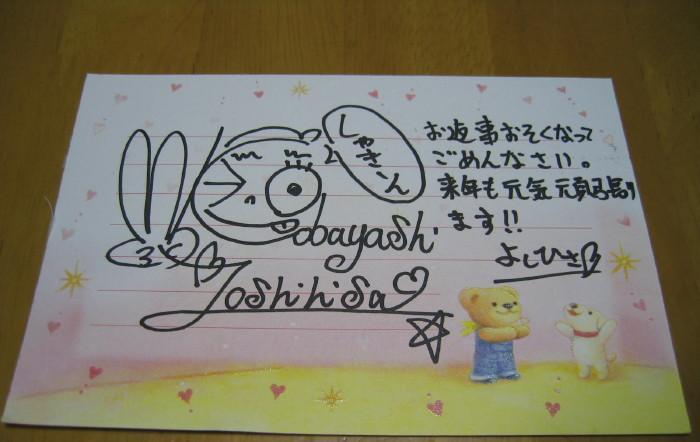 しゃきーん
obayashi
Yoshihisa♡
お返事おそくなって
ごめんなさい。
来年も元気元頑張り
ます!!
よしひさ